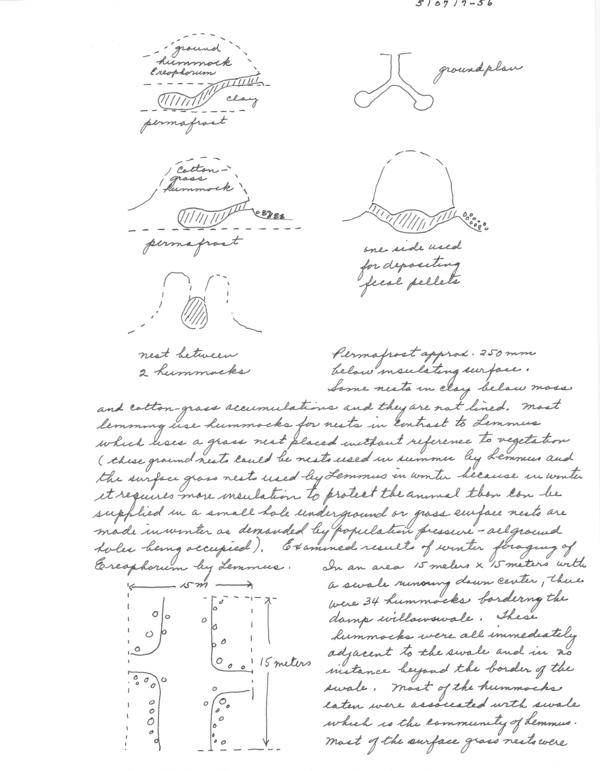 510717-56
ground
hummock
Ereophorum
clay
permafrost
groundplan
cotton-
grass
hummock
permafrost
one side used
for depositing
fecal pellets
nest between
2 hummocks
Permafrost approx. 250 mm
below insulating surface.
Some nests in clay below moss
and cotton-grass accumulations and they are not lined. Most
lemming use hummocks for nests in contrast to Lemmus
which uses a grass nest placed without reference to vegetation
(these ground nests could be nests used in summer by Lemmus and
the surface grass nests used by Lemmus in winter because in winter
it requires more insulation to protect the animal than can be
supplied in a small hole underground or grass surface nests are
made in winter as demanded by population pressure - all ground
holes being occupied). Examined results of winter foraging of
Ereophorum by Lemmus.
In an area 15 meters x 15 meters with
a swale running down center, there
were 34 hummocks bordering the
damp willow swale. These
hummocks were all immediately
adjacent to the swale and in no
instance beyond the border of the
swale. Most of the hummocks
eaten were associated with swale
which is the community of Lemmus.
Most of the surface grass nests were
15 M
15 meters